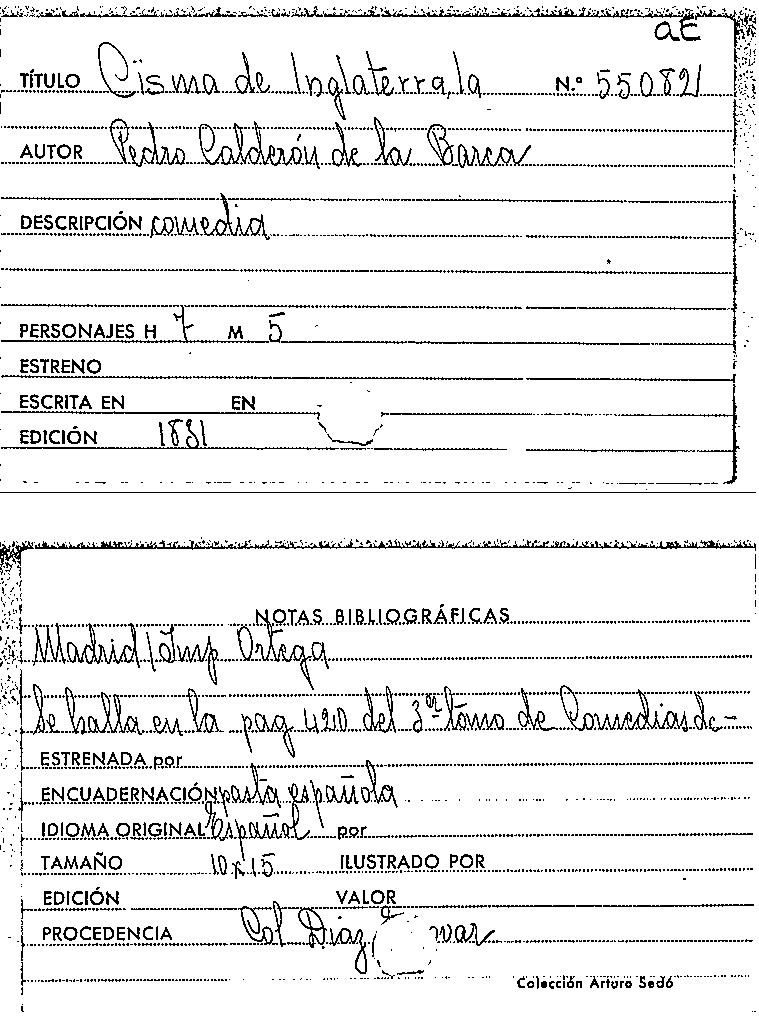 aE
TÍTULO Cisma de Inglaterra, la N.º 55082
AUTOR Pedro Calderón de la Barca
DESCRIPCIÓN comedia
PERSONAJES H 7 M 5
ESTRENO
ESCRITA EN EN
EDICIÓN 1831
NOTAS BIBLIOGRÁFICAS
Madrid/Imp Ortega
Se halla en la pag 420 del 3er tomo de Comedias de-
ESTRENADA por
ENCUADERNACIÓN pasta española
IDIOMA ORIGINAL Español por
TAMAÑO 10x15 ILUSTRADO POR
EDICIÓN VALOR
PROCEDENCIA Col Diaz
Colección Arturo Sedó